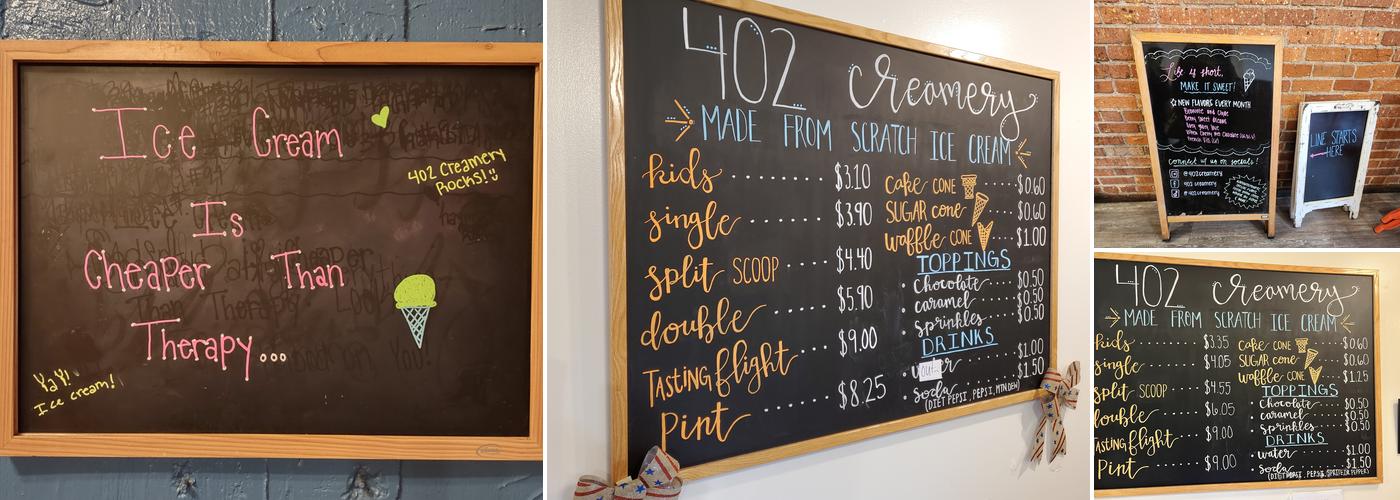 Ice Cream
402 Creamery
Rocks!
Is
Cheaper Than
Therapy...
YaY!
Ice cream!
402 Creamery
MADE FROM SCRATCH ICE CREAM
kids ...... $3.10
single ...... $3.90
split SCOOP .... $4.40
double ...... $5.90
TASTING flight .... $9.00
Pint ........ $8.25
cake CONE ... $0.60
SUGAR cone ... $0.60
waffle CONE ... $1.00
TOPPINGS
• chocolate $0.50
• caramel $0.50
• sprinkles $0.50
DRINKS
out $1.00
• soda $1.50
(DIET PEPSI, PEPSI, MTN DEW)
Life is short,
MAKE IT SWEET!
NEW FLAVORS EVERY MONTH
connect w/ us on socials!
@402creamery
402 creamery
@402creamery
LINE STARTS
HERE
402 Creamery
MADE FROM SCRATCH ICE CREAM
kids $3.35
single $4.05
split SCOOP $4.55
double $6.05
TASTING flight $9.00
Pint $9.00
cake CONE $0.60
SUGAR cone $0.60
waffle CONE $1.25
TOPPINGS
• Chocolate $0.50
• caramel $0.50
• Sprinkles $0.50
DRINKS
• water $1.00
• soda $1.50